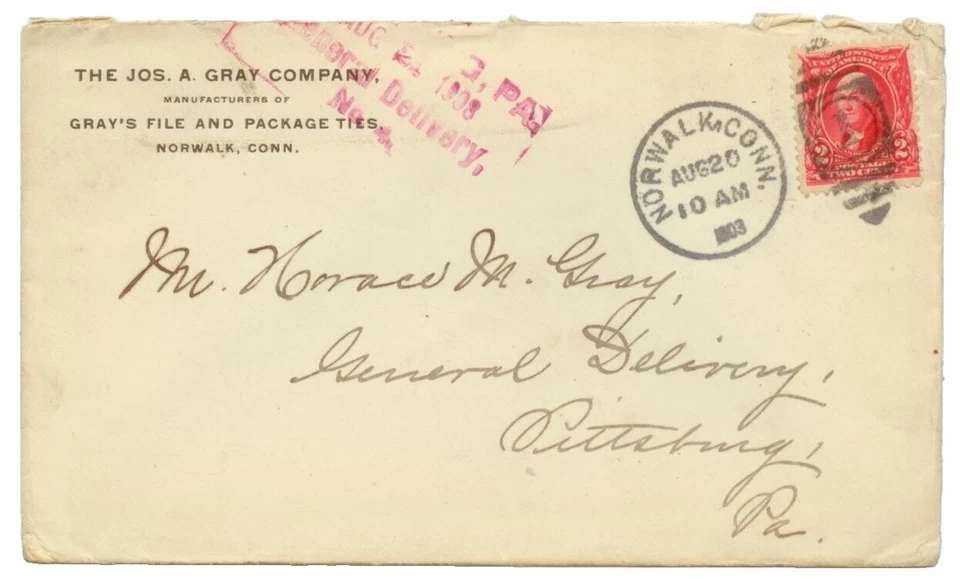 THE JOS. A. GRAY COMPANY,
MANUFACTURERS OF
GRAY'S FILE AND PACKAGE TIES,
NORWALK, CONN.
G, PA.
AUG 21 1903
General Delivery,
No.
NORWALK, CONN.
AUG 20
10 AM
1903
UNITED STATES
OF AMERICA
2 2
POSTAGE
TWO CENTS
Mr. Horace M. Gray,
General Delivery,
Pittsburg,
Pa.